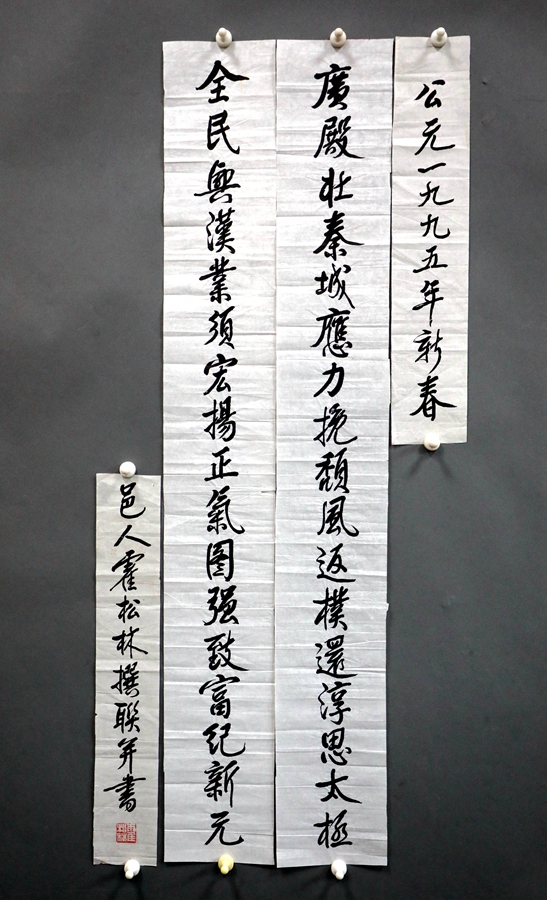 公元一九九五年新春
廣殿壯秦城應力挽頽風返樸還淳思太極
全民興漢業須宏揚正氣图强致富纪新元
邑人霍松林撰聯并書